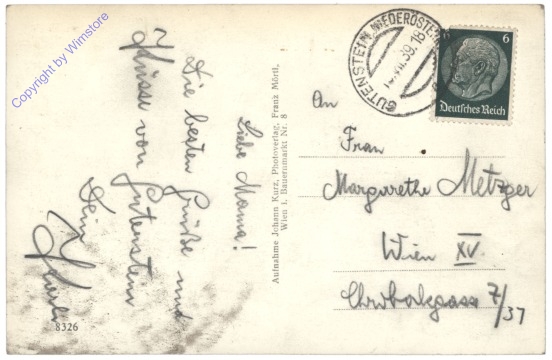 Copyright by Wimstore
Liebe Mama!
Die besten Grüße und
Küsse von Gutenstein
Dein
8326
Aufnahme Johann Kurz, Photoverlag, Franz Mörtl,
Wien 1. Bauernmarkt Nr. 8
GUTENSTEIN, NIEDERÖSTE
39. 18
6
Deutsches Reich
An
Frau
Margarethe Metzger
Wien XV.
7/37